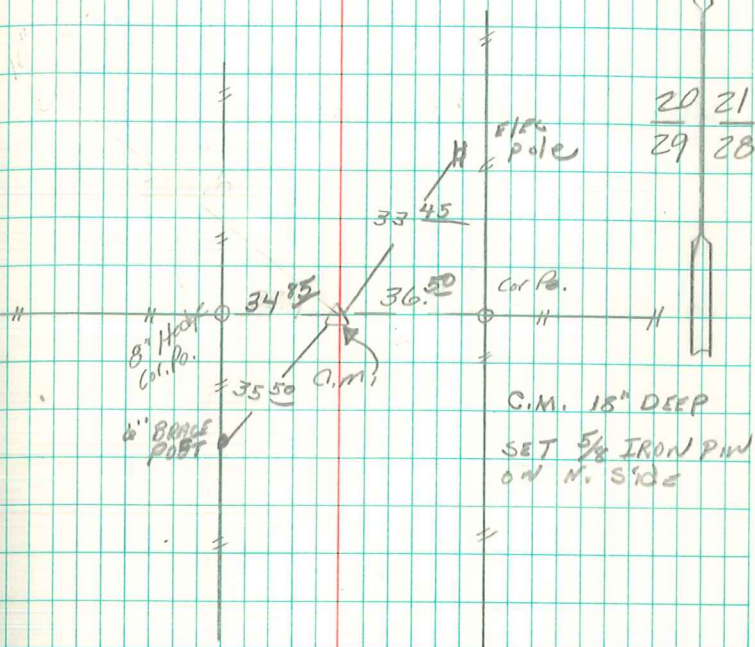 20 21
29 28
Elec
pole
33 45
34 85
36.50
Cor Po.
8"
Cor. Po.
35 50
C.M.
6" BRACE
POST
C.M. 18" DEEP
SET 5/8 IRON PIN
ON N. Side